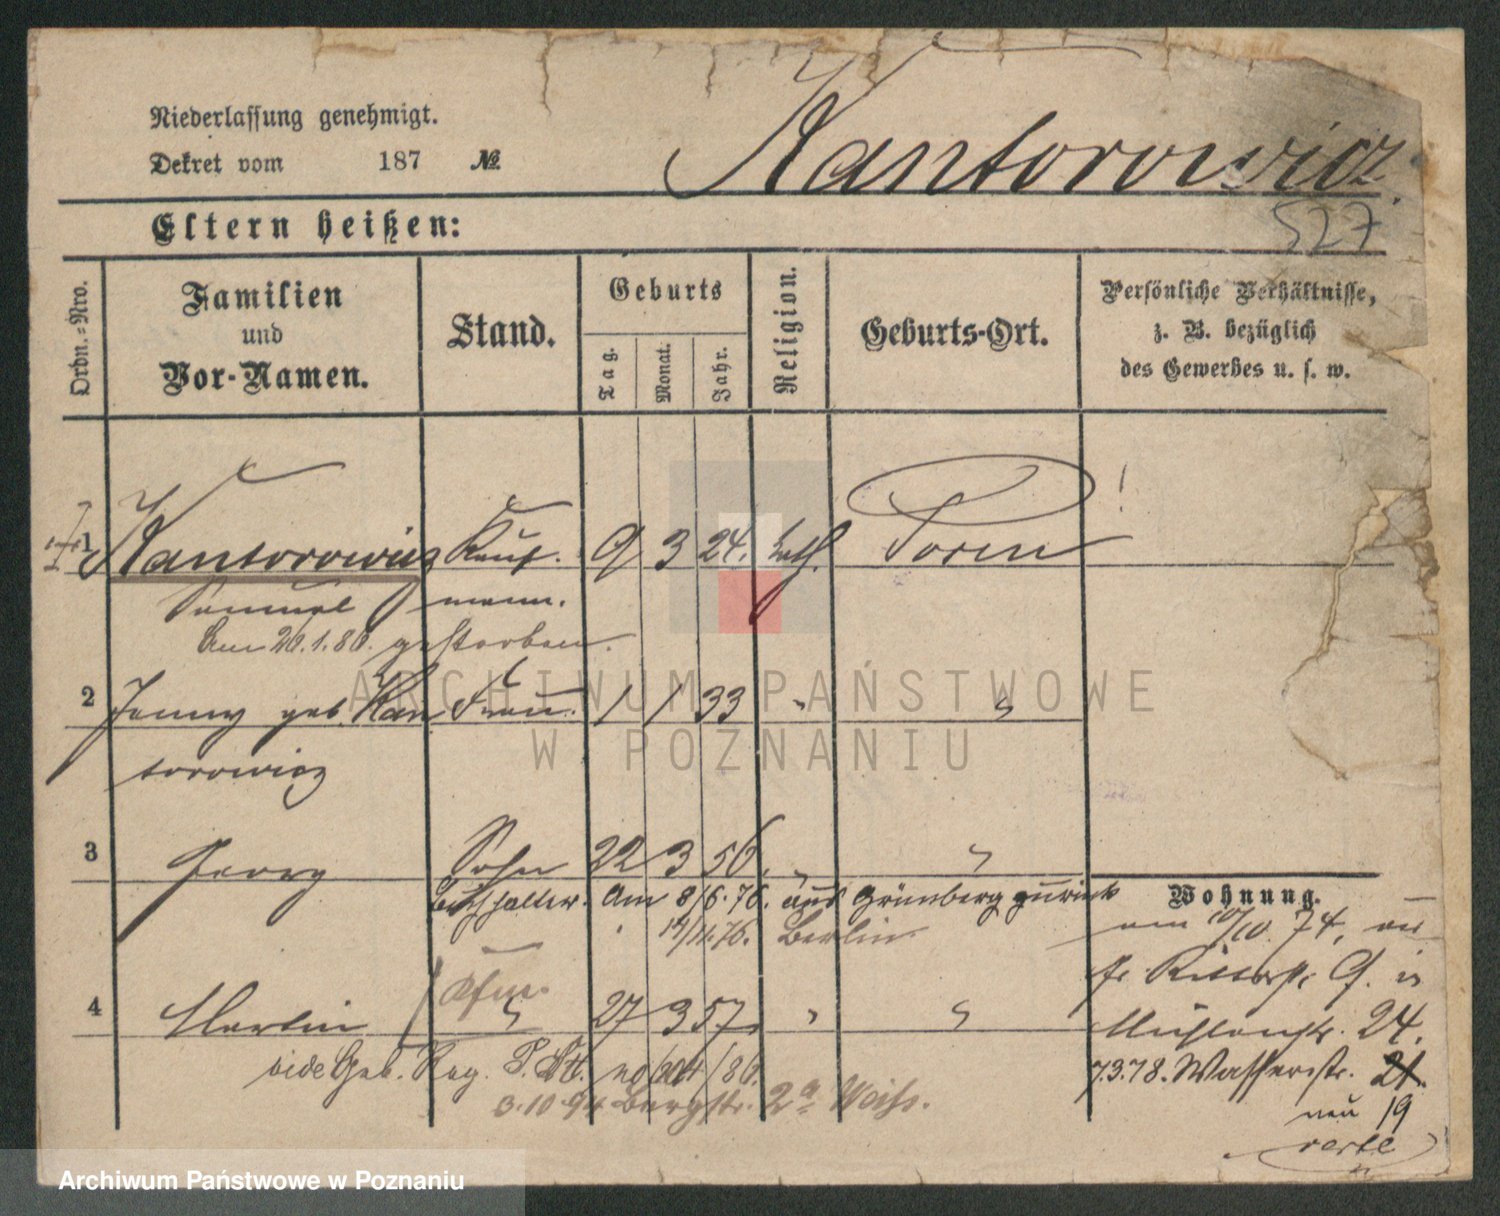 Niederlassung genehmigt.
Dekret vom 187 №
Kantorowicz
527
Eltern heißen:
Ordn.-Nro.
Familien
und
Vor-Namen.
Stand.
Geburts
Tag.
Monat.
Jahr.
Religion.
Geburts-Ort.
Persönliche Verhältnisse,
z. B. bezüglich
des Gewerbes u. s. w.
1 Kantorowicz Kauf- 9 3 24. Posen
Samuel mann.
Am 26.1.86. gestorben.
2 Jenny geb. Kan Frau 1 1 33 " "
torowicz
3 Georg Sohn 22 3 56. " "
Buchhalter. Am 8/6.76. aus Grünberg zurück
14/11.76. Berlin
4 Martin " 27 3 57. " "
vide Geb. Reg. /86.
3.10.94 Bergstr. 2a Weiss.
Wohnung.
am 10/10. 74, au
fr. Ritterstr. 9. in
Mühlenstr. 24.
7.3.78. Wasserstr. 21.
neu 19
verte
ARCHIWUM PAŃSTWOWE
W POZNANIU
Archiwum Państwowe w Poznaniu